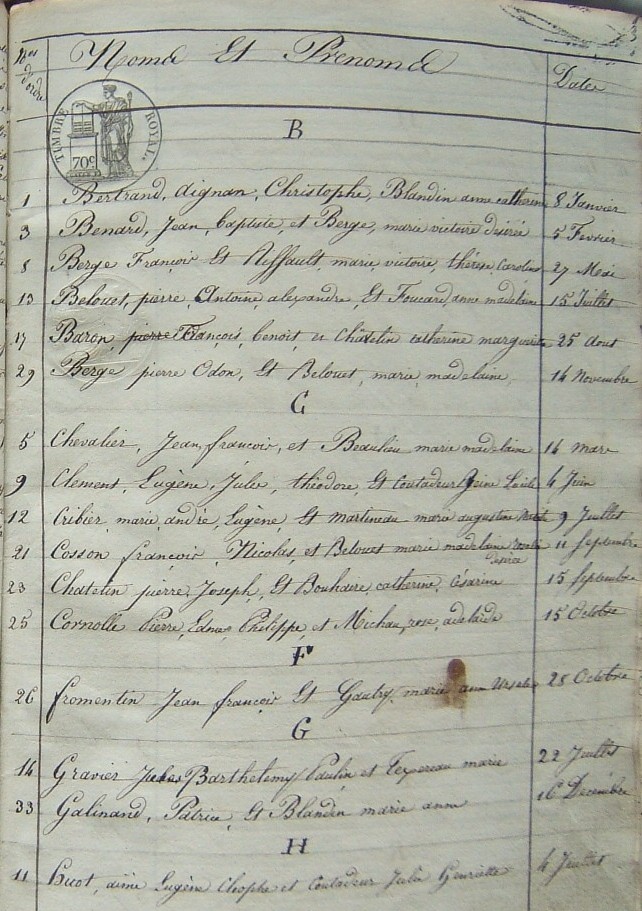 Nos d'ordre Noms Et Prenoms Dates
TIMBRE ROYAL.
70c
B
1 Bertrand, aignan, Christophe, Blandin anne catherine 8 Janvier
3 Benard, Jean, baptiste et Berge, marie victoire désirée 5 Fevrier
8 Berge François Et Neffault, marie, victoire, thérèse Caroline 27 Mai
13 Belouet, pierre, Antoine, alexandre, Et Foucard, anne madelaine 15 Juillet
17 Baron, pierre François, benoit, et Chatelin catherine marguerite 25 aout
29 Berge pierre Odon, Et Belouet, marie, madelaine, 14 Novembre
C
5 Chevalier, Jean, francois, et Beaulieu marie madelaine 14 mars
9 Clement, Eugène, Jules, théodore, Et Coutadeur 4 Juin
12 Cribier, marie, andré, Eugène, Et Martineau marie augustine 9 Juillet
21 Cosson françois, Nicolas, et Belouet marie madelaine 11 Septembre
désirée
23 Chatelin pierre, Joseph, Et Bouhaire, catherine, Césarine 15 Septembre
25 Cornolle Pierre, Edme, Philippe, et Michau, rose, adelaide 15 Octobre
F
26 fromentin Jean françois Et Gautry, marie ann Ursule 28 Octobre
G
14 Gravier Jules Barthelemy Paulin et Texereau marie 22 Juillet
33 Galinand, Patrice, Et Blandin marie anne 16 Decembre
H
11 huot, aimé Eugène et Coutadeur Julie Henriette 4 Juillet